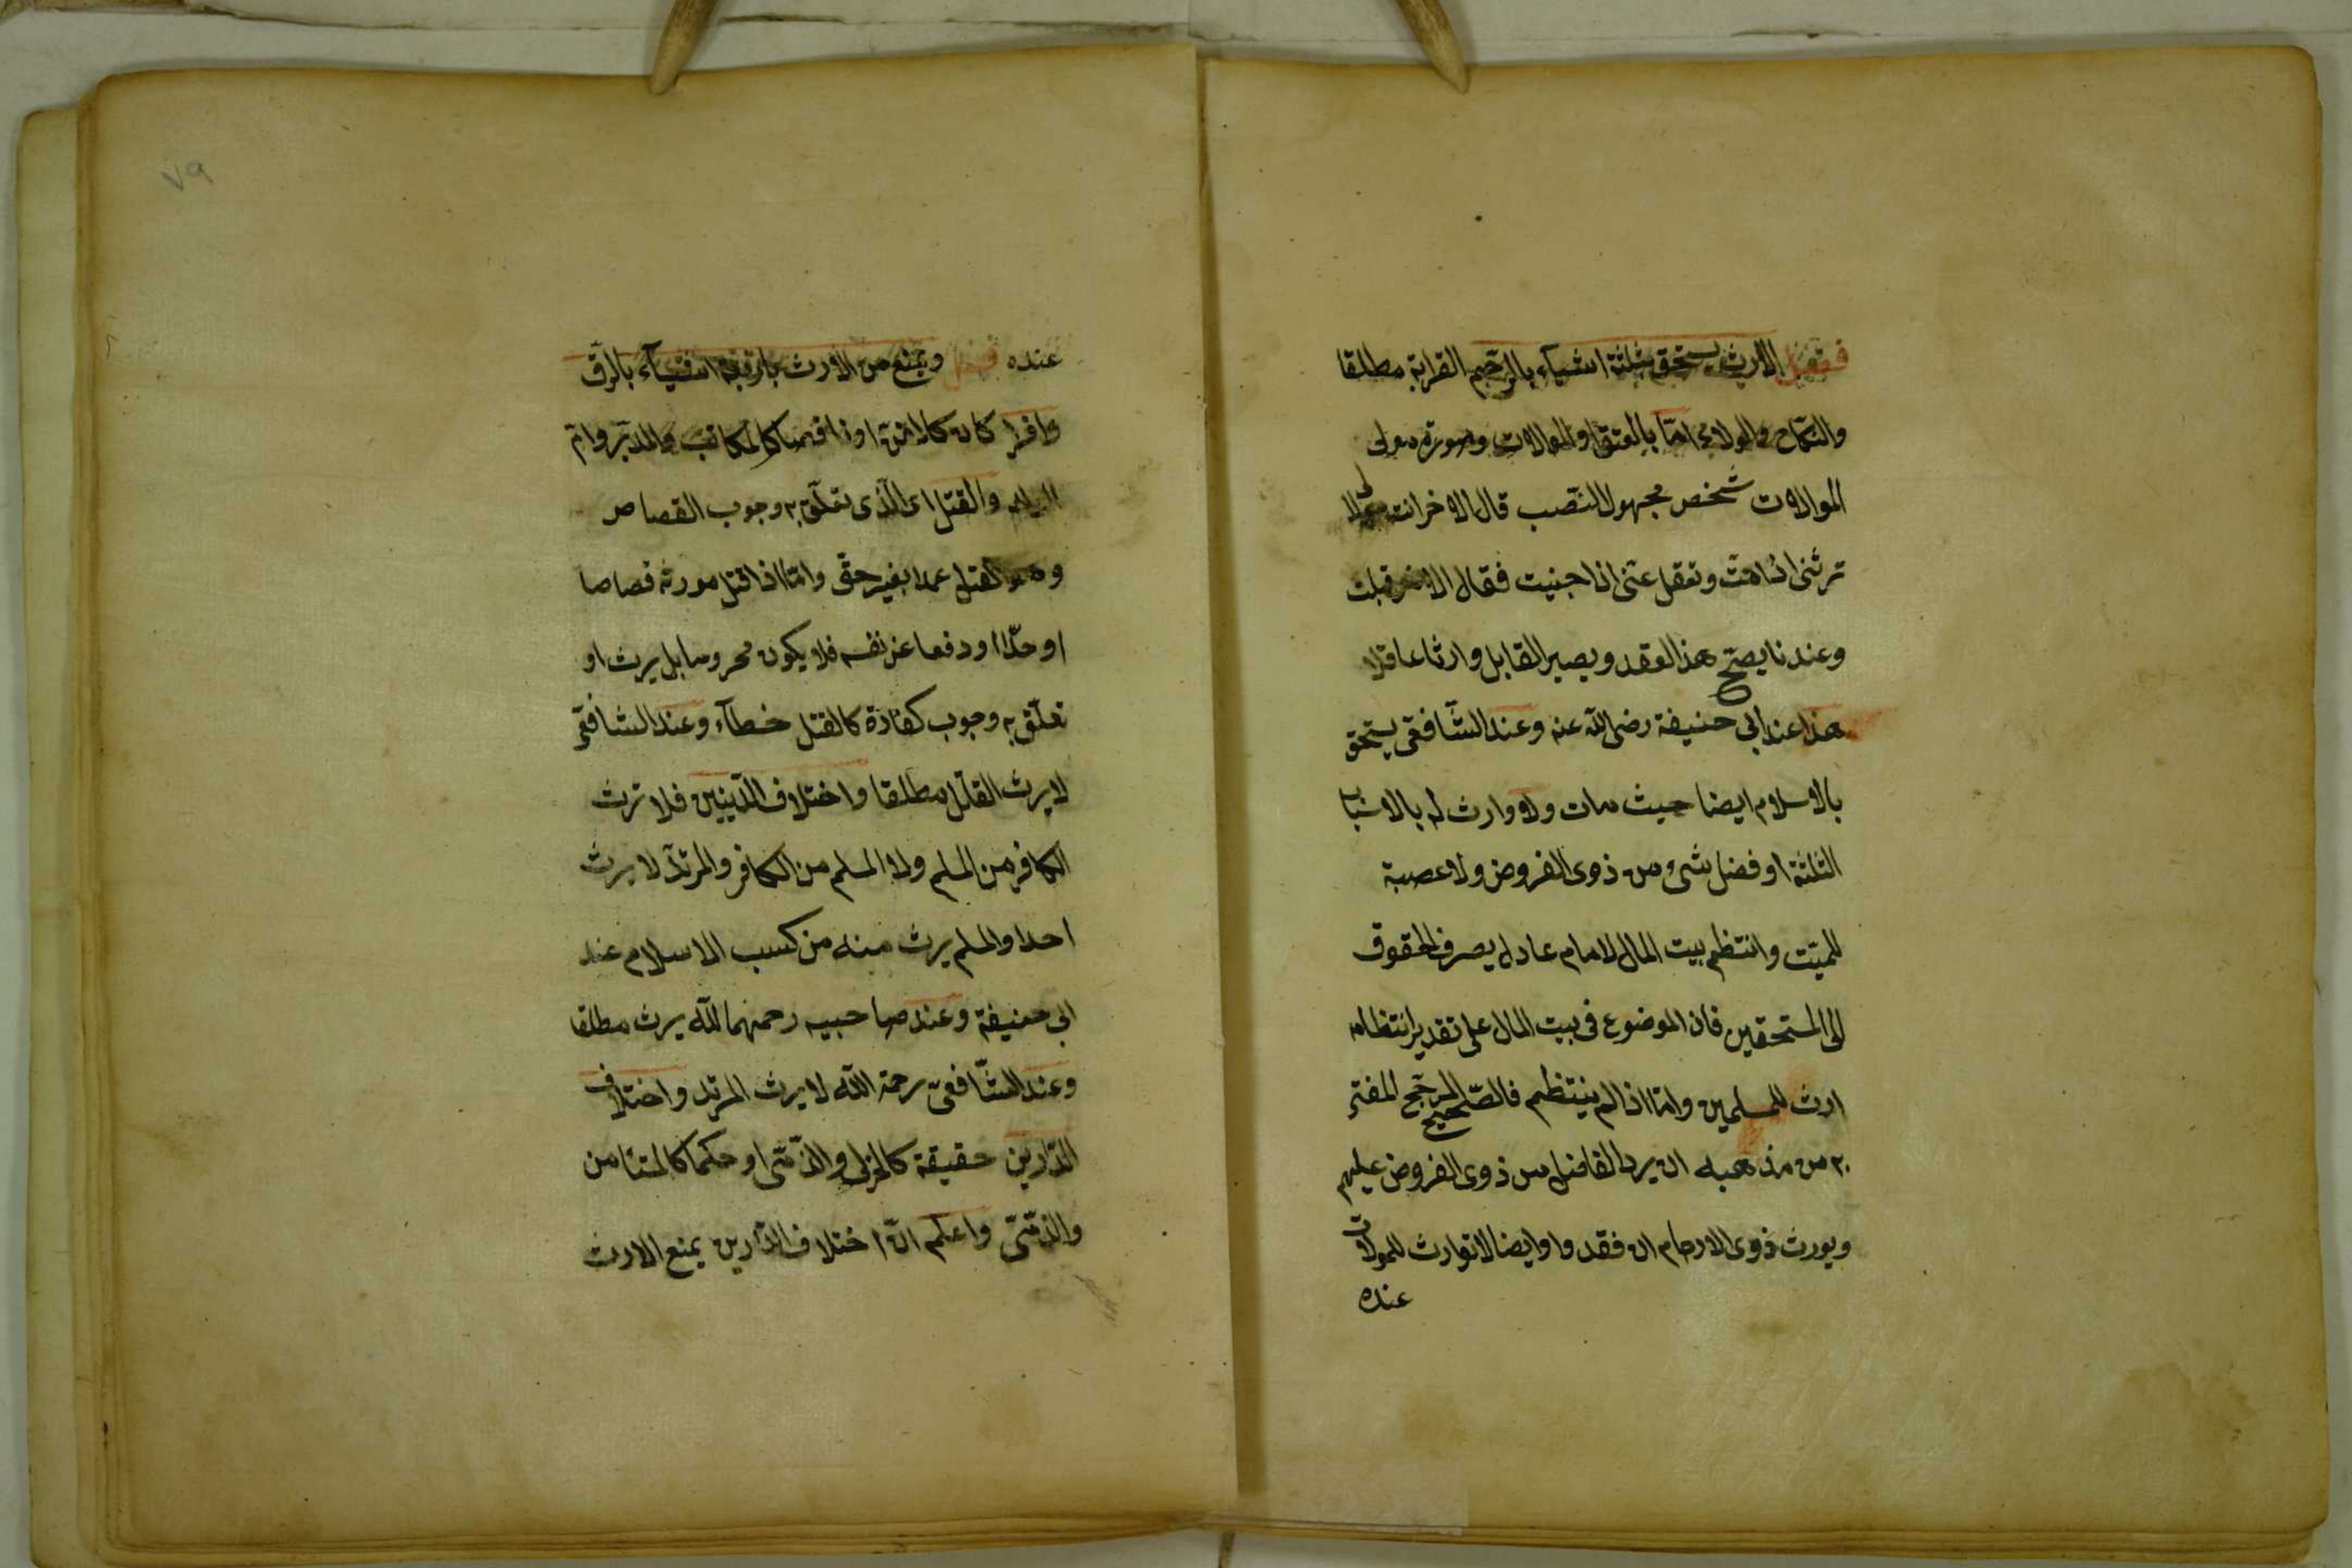 فصل الارث يستحق بثلثة اشياء بالرحم القرابة مطلقا
والنكاح والولاء امّا بالعتق او الموالات وصورة مولى
الموالات شخص مجهول النصب قال لاخر انت مولا
ترثنى اذا مت وتعقل عنّى اذا جنيت فقال الاخر قبلت
وعندنا يصحّ هذا العقد ويصير القابل وارثا عاقلا
هذا عند ابى حنيفة رضى اللّه عنه وعند الشّافعى يستحق
بالاسلام ايضا حيث مات ولا وارث له بالاسباب
الثلثة او فضل شىء من ذوى الفروض ولا عصبة
للميّت وانتظم بيت المال لامام عادل يصرف الحقوق
الى المستحقين فان الموضوع فى بيت المال على تقدير انتظامه
ارث للمسلمين وامّا اذا لم ينتظم فالصّحيح المرجّح المفتى
به من مذهبه ان يرد الفاضل من ذوى الفروض عليهم
ويورث ذوى الارحام ان فقدوا وايضا لا توارث للمولات
عنده
عنده فصل ويمنع من الارث باربعة اشياء بالرّق
وافرا كان كالقن او ناقصا كالمكاتب والمدبّر وامّ
الولد والقتل اى الّذى تعلّق به وجوب القصاص
وهو القتل عمدا بغير حقّ وامّا اذا قتل مورثه قصاصا
او حدّا او دفعا عن نفسه فلا يكون محروما بل يرث او
تعلّق به وجوب كفارة كالقتل خطآء وعند الشافعّى
لا يرث القاتل مطلقا واختلاف الدّينين فلا ترث
الكافر من المسلم ولا المسلم من الكافر والمرتدّ لا يرث
احدا والمسلم يرث منه من كسب الاسلام عند
ابى حنيفة وعند صاحبيه رحمهما اللّه يرث مطلقا
وعند الشّافعىّ رحمة اللّه لا يرث المرتد واختلاف
الدّارين حقيقة كالحربى والذّمّى او حكما كالمستأمن
والذمّتىّ واعلم انّ اختلاف الدّارين يمنع الارث
٧٩